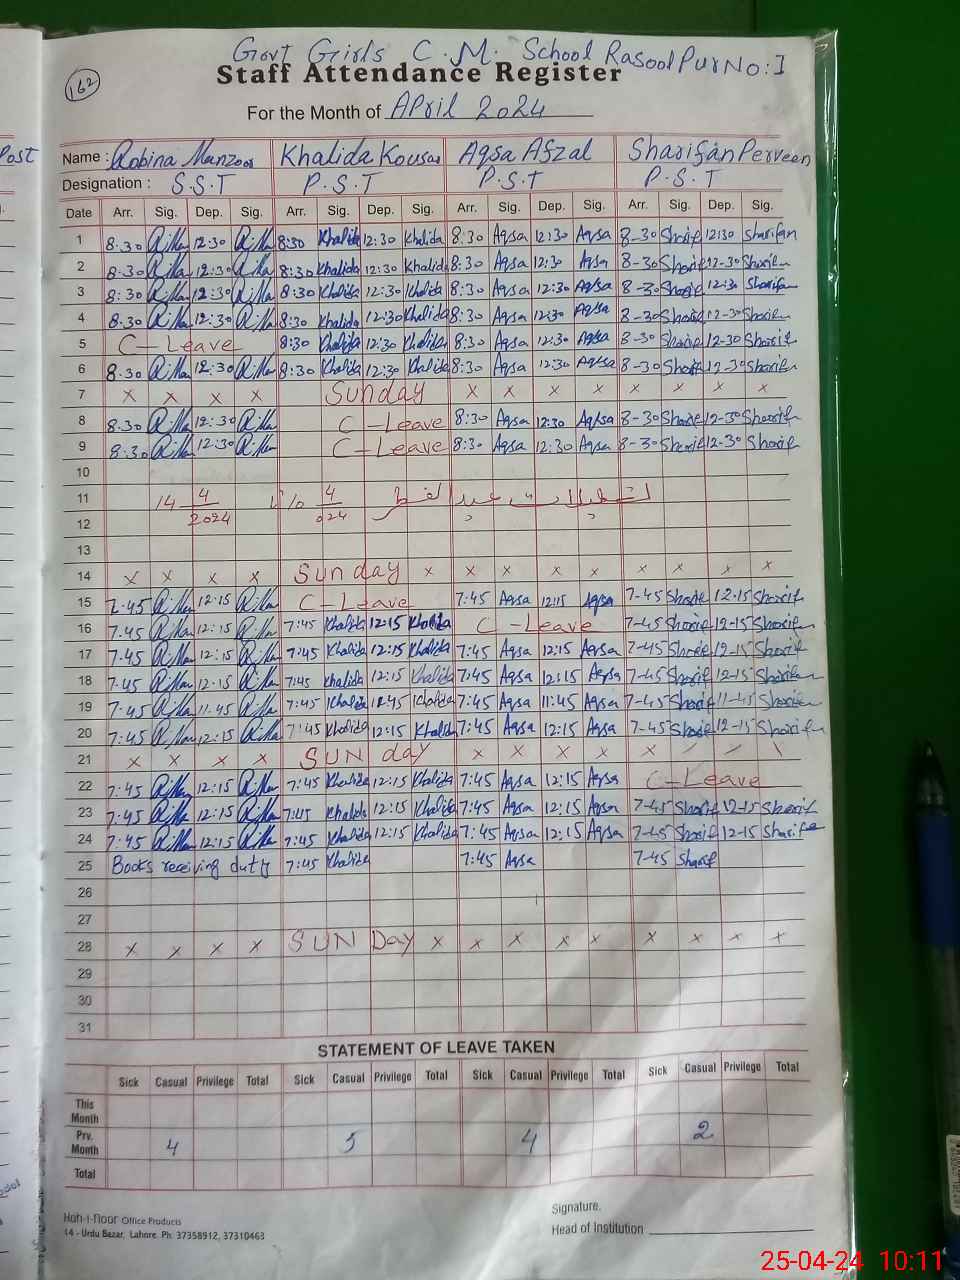 Govt Girls C.M. School RasoolPurNo:I
162
Staff Attendance Register
For the Month of APril 2024
Post
Name : Robina Manzoor Khalida Kousar Aqsa Afzal Sharifan Perveen
Designation : S.S.T P.S.T P.S.T P.S.T
Date Arr. Sig. Dep. Sig. Arr. Sig. Dep. Sig. Arr. Sig. Dep. Sig. Arr. Sig. Dep. Sig.
1 8:30 12:30 8:30 Khalida 12:30 Khalida 8:30 Aqsa 12:30 Aqsa 8-30 Sharif 12:30 Sharifan
2 8:30 12:30 8:30 Khalida 12:30 Khalida 8:30 Aqsa 12:30 Aqsa 8-30 Sharif 12-30 Sharif
3 8:30 12:30 8:30 Khalida 12:30 Khalida 8:30 Aqsa 12:30 Aqsa 8-30 Sharif 12:30 Sharifan
4 8:30 12:30 8:30 Khalida 12:30 Khalida 8:30 Aqsa 12:30 Aqsa 8-30 Sharif 12-30 Sharif
5 C-Leave 8:30 Khalida 12:30 Khalida 8:30 Aqsa 12:30 Aqsa 8-30 Sharif 12-30 Sharif
6 8:30 12:30 8:30 Khalida 12:30 Khalida 8:30 Aqsa 12:30 Aqsa 8-30 Sharif 12-30 Sharif
7 x x x x Sunday x x x x x x x x
8 8:30 12:30 C-Leave 8:30 Aqsa 12:30 Aqsa 8-30 Sharif 12-30 Sharif
9 8:30 12:30 C-Leave 8:30 Aqsa 12:30 Aqsa 8-30 Sharif 12-30 Sharif
10
11 تعطیلات عید الفطر 10 4/024 14 4/2024
12
13
14 x x x x Sunday x x x x x x x x x
15 7:45 12:15 C-Leave 7:45 Aqsa 12:15 Aqsa 7-45 Sharif 12-15 Sharif
16 7:45 12:15 7:45 Khalida 12:15 Khalida C-Leave 7-45 Sharif 12-15 Sharif
17 7:45 12:15 7:45 Khalida 12:15 Khalida 7:45 Aqsa 12:15 Aqsa 7-45 Sharif 12-15 Sharif
18 7:45 12:15 7:45 Khalida 12:15 Khalida 7:45 Aqsa 12:15 Aqsa 7-45 Sharif 12-15 Sharifan
19 7:45 11:45 7:45 Khalida Khalida 7:45 Aqsa 11:45 Aqsa 7-45 Sharif 11-45 Sharifan
20 7:45 12:15 7:45 Khalida 12:15 Khalida 7:45 Aqsa 12:15 Aqsa 7-45 Sharif 12-15 Sharifan
21 x x x x SUNday x x x x x
22 7:45 12:15 7:45 Khalida 12:15 Khalida 7:45 Aqsa 12:15 Aqsa C-Leave
23 7:45 12:15 7:45 Khalida 12:15 Khalida 7:45 Aqsa 12:15 Aqsa 7-45 Sharif 12-15 Sharif
24 7:45 12:15 7:45 Khalida 12:15 Khalida 7:45 Aqsa 12:15 Aqsa 7-45 Sharif 12-15 Sharifan
25 Books receiving duty 7:45 Khalida 7:45 Aqsa 7-45 Sharif
26
27
28 x x x x SUNDay x x x x x x x x x
29
30
31
STATEMENT OF LEAVE TAKEN
Sick Casual Privilege Total Sick Casual Privilege Total Sick Casual Privilege Total Sick Casual Privilege Total
This Month
Prv. Month 4 5 4 2
Total
Koh-i-noor Office Products
14 - Urdu Bazar, Lahore. Ph: 37358912, 37310463
Signature.
Head of Institution
25-04-24 10:11